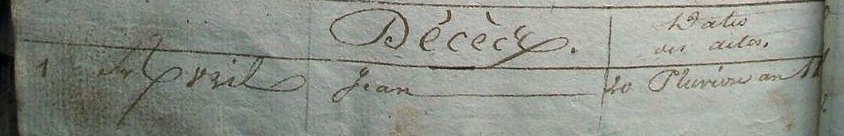 Décècs.
Dates
des actes.
1 Avril Jean 20 Pluviose an 11